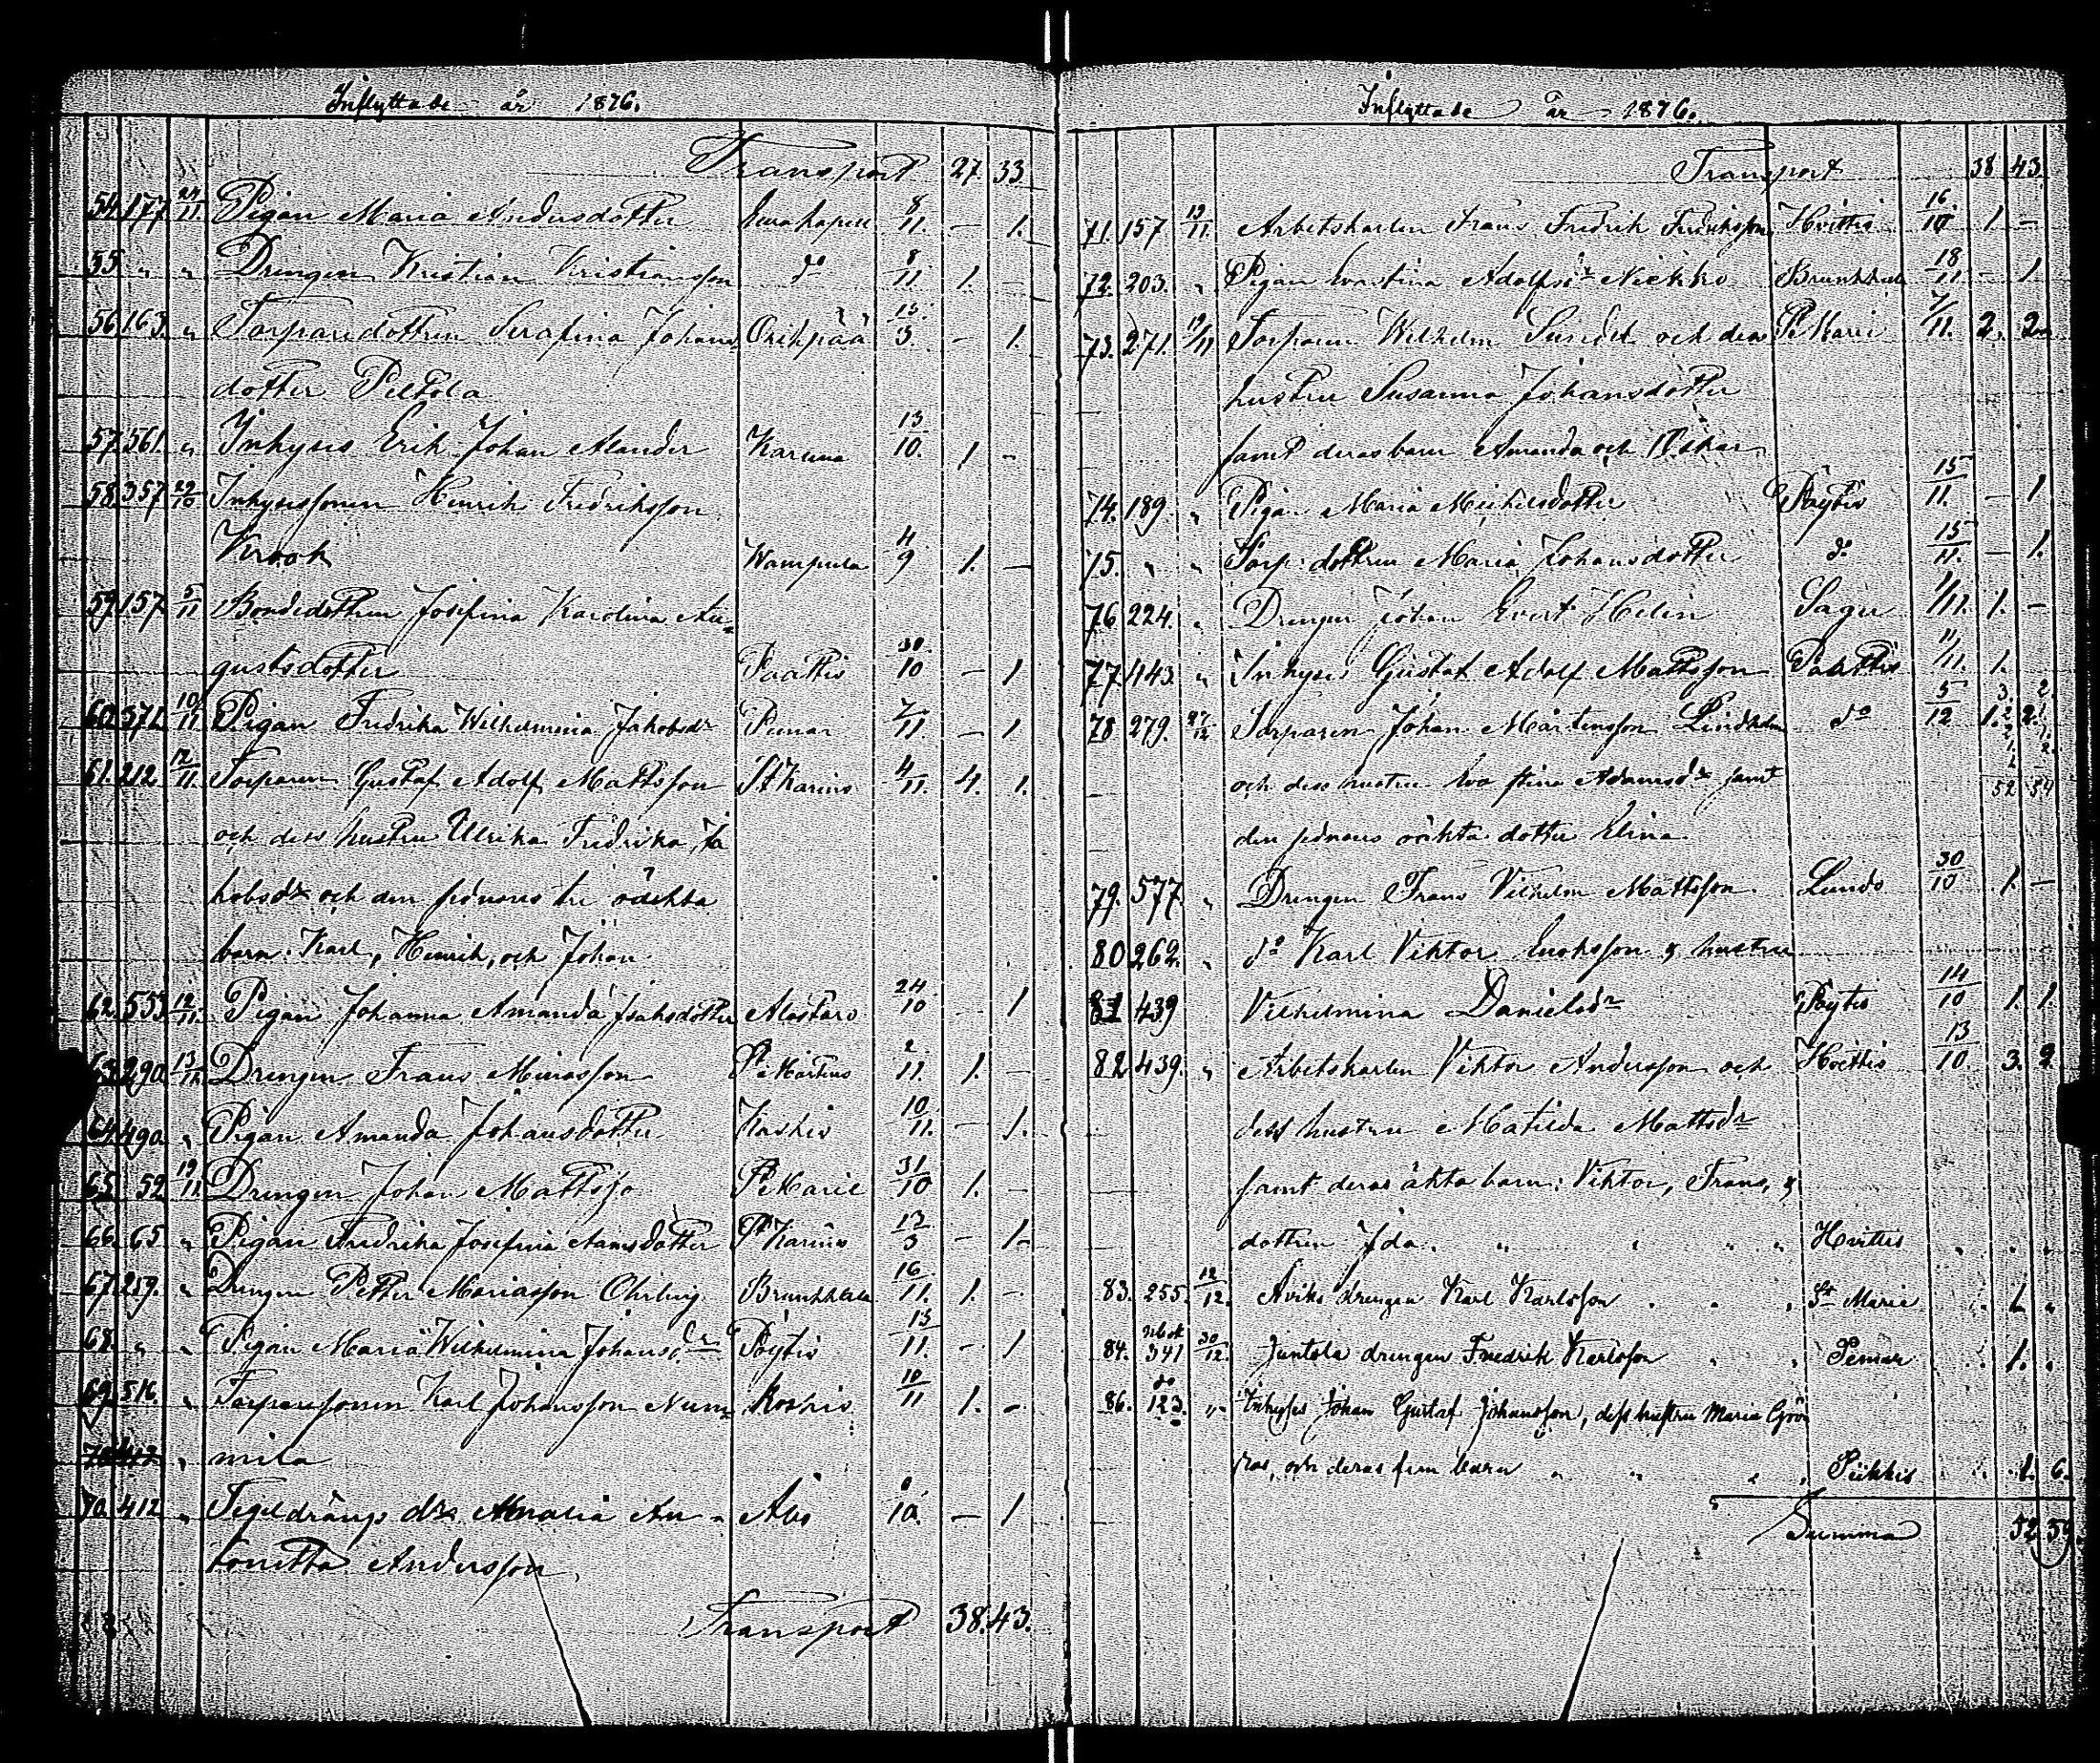 Inflyttade år 1876.
Transport 27 33
54. 177 24/11 Pigan Maria Andersdotter Eura kapell 8/11. — 1.
55 " " Drengen Kristian Kristiansson do 8/11 1. —
56 163. " Torparedottren Serafina Johans Orihpää 15/3. — 1.
dotter Peltola
57. 561. " Inhyses Erik Johan Alander Karuna 13/10. 1 —
58. 357 29/10 Inhysessonen Henrik Fredriksson
Krook Wampula 4/9 1. —
59. 157 5/11 Bondedottren Josefina Karolina Au-
gustsdotter Paattis 30/10 — 1
60. 371. 10/11 Pigan Fredrika Wilhelmina Jakobsdr Pemar 7/11 — 1
61. 212 12/11. Torparen Gustaf Adolf Mattsson St Karins 4/11. 4. 1.
och dess hustru Ulrika Fredrika Ja
kobsdr och den förres tre äckta
barn. Karl, Henrik, och Johan
62. 553 12/11. Pigan Johanna Amanda Isaksdotter Alastaro 24/10 — 1
63. 290. 13/11 Drengen Frans Minasson St Mårtens 2/11. 1. —
64. 490. " Pigan Amanda Johansdotter Koskis 10/11. — 1.
65. 52 19/11 Drengen Johan Mattsso St Marie 31/10 1. —
66. 65 " Pigan Fredrika Josefina Adamsdotter St Karins 13/3 — 1.
67. 259. " Drengen Petter Mariasson Öhrling Brunkkala 16/11. 1. —
68. " " Pigan Maria Wilhelmina Johansdr Pöytis 13/11. — 1
69. 516. " Torparesonen Karl Johansson Num- Koskis 10/11 1. —
70 412 " mila
70. 412 " Tegeldrängs dr Amalia An- Åbo 6/10. — 1
tonetta Andersson
Transport 38. 43.
Inflyttade år 1876.
Transport 38 43
71. 157 19/11 Arbetskarlen Frans Fredrik Fredriksson Hvittis 16/10 1 —
72. 203. " Pigan Evastina Adolfsdr Niekko Brunkkala 18/11 — 1
73. 271. 19/11 Torparen Wilhelm Sundel och dess St Marie 7/11. 2. 2
hustru Susanna Johansdotter
samt deras barn Amanda och Oskar
74. 189. " Pigan Maria Michelsdotter Pöytis 15/11. — 1
75. " " Torp. dottren Maria Johansdotter do 15/11. — 1.
76 224. " Drengen Johan Evert Helin Sagu 1/11. 1. —
77 443. " Inhyses Gustaf Adolf Mattsson Paattis 11/11. 1.
78 279. 27/12 Torparen Johan Mårtensson Lindholm do 5/12 1. 2.
och dess hustru Eva Stina Adamsdr samt 52 54
den sednares oäkta dotter Elina
79. 577. " Drengen Frans Vilhelm Mattsson Lundo 30/10 1. —
80 262. " do Karl Viktor Enoksson & hustru
81 439 Vilhelmina Danielsdr Pöytis 14/10 1. 1.
82 439. " Arbetskarlen Viktor Andersson och Hvittis 13/10. 3. 2.
dess hustru Matilda Mattsdr
samt deras äkta barn: Viktor, Frans, &
dottren Ida. " " " " Hvittis " " "
83. 255. 12/12. Aviks drengen Karl Karlsson " " " St Marie 1. "
84. 341 30/12. Juntola drengen Fredrik Karlsson " " Pemar 1. "
86. 123. " Inhyses Johan Gustaf Johansson, dess hustru Maria
och deras fem barn " " " " Piikkis 1. 6.
Summa 52 59.